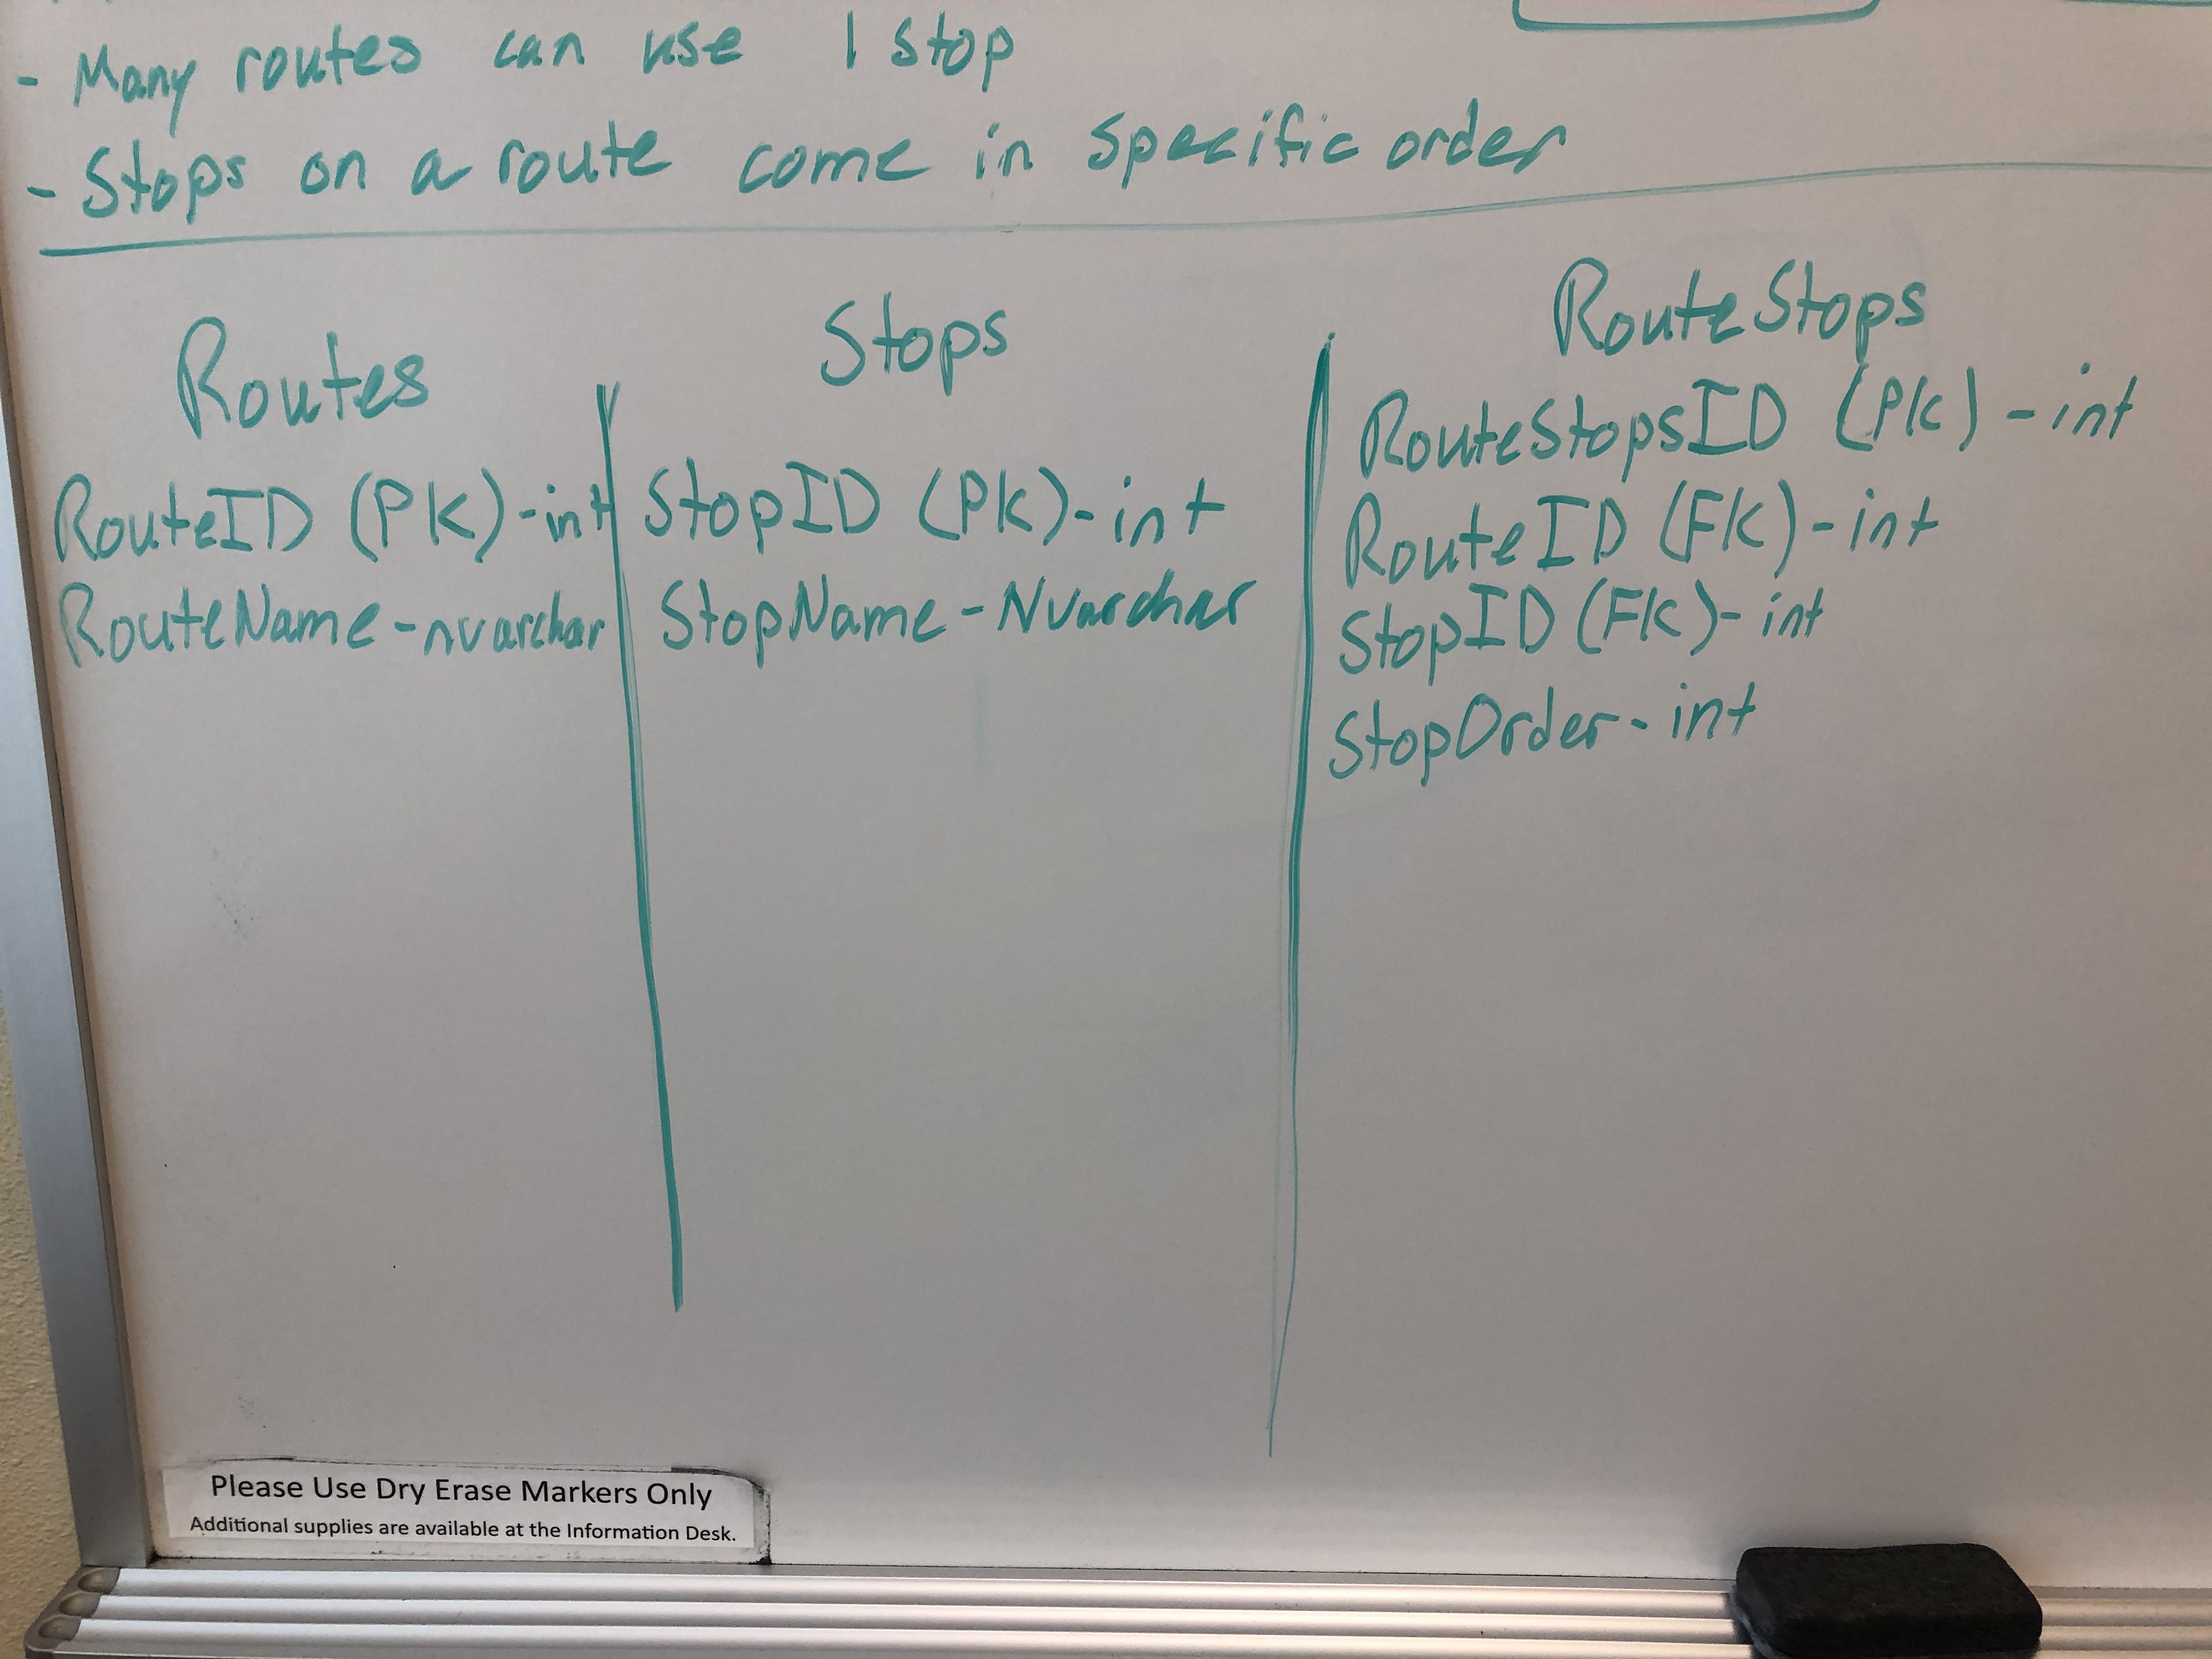 - Many routes can use 1 stop
- Stops on a route come in specific order
Routes
RouteID (PK)-int
RouteName-nvarchar
Stops
StopID (PK)-int
StopName-Nvarchar
RouteStops
RouteStopsID (PK)-int
RouteID (FK)-int
StopID (FK)-int
StopOrder-int
Please Use Dry Erase Markers Only
Additional supplies are available at the Information Desk.